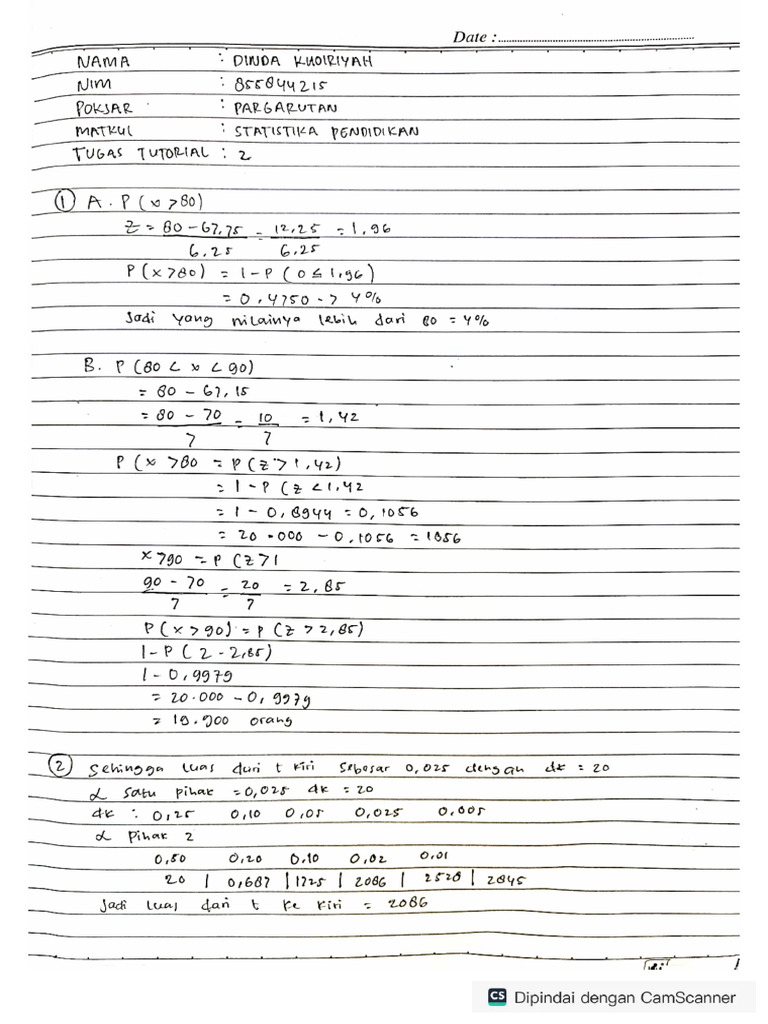 Date :
NAMA : DINDA KHOIRIYAH
NIM : 855844215
POKJAR : PARGARUTAN
MATKUL : STATISTIKA PENDIDIKAN
TUGAS TUTORIAL : 2
① A. P (x > 80)
Z = 80 - 67,75 = 12,25 = 1,96
6,25 6,25
P (x > 80) = 1 - P (0 ≤ 1,96)
= 0,4750 -> 4%
Jadi yang nilainya lebih dari 80 = 4%
B. P (80 < x < 90)
= 80 - 67,15
= 80 - 70 = 10 = 1,42
7 7
P (x > 80 = P (Z > 1,42)
= 1 - P (Z < 1,42
= 1 - 0,8944 = 0,1056
= 20.000 - 0,1056 = 1056
x > 90 = P (Z > 1
90 - 70 = 20 = 2,85
7 7
P (x > 90) = P (Z > 2,85)
1 - P ( 2 - 2,85)
1 - 0,9979
= 20.000 - 0,9979
= 19.900 orang
② Sehingga luas dari t kiri sebesar 0,025 dengan dk = 20
α satu pihak = 0,025 dk = 20
dk : 0,25 0,10 0,05 0,025 0,005
α Pihak 2
0,50 0,20 0,10 0,02 0,01
20 | 0,687 | 1725 | 2086 | 2528 | 2845
Jadi luas dari t ke kiri = 2086
CS Dipindai dengan CamScanner